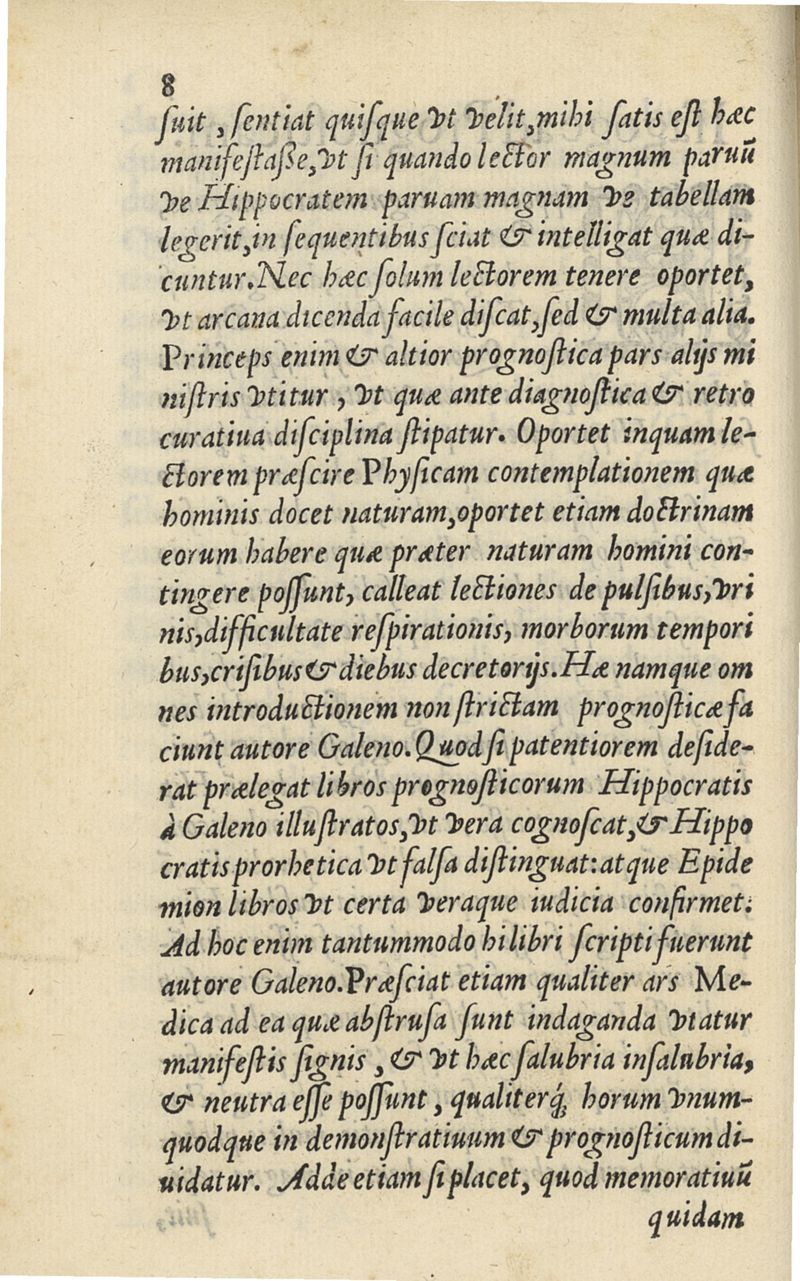 8
ſuit , ſentiat quiſque vt velit,mihi ſatis eſt hæc
manifeſtaſſe,vt ſi quando lector magnum paruū
ve Hippocratem paruam magnam ve tabellam
legerit,in ſequentibus ſciat & intelligat quæ di-
cuntur.Nec hæc ſolum lectorem tenere oportet,
vt arcana dicenda facile diſcat,ſed & multa alia.
Princeps enim & altior prognoſtica pars alijs mi
niſtris vtitur , vt quæ ante diagnoſtica & retro
curatiua diſciplina ſtipatur. Oportet inquam le-
ctorem præſcire Phyſicam contemplationem quæ
hominis docet naturam,oportet etiam doctrinam
eorum habere quæ præter naturam homini con-
tingere poſſunt, calleat lectiones de pulſibus,vri
nis,difficultate reſpirationis, morborum tempori
bus,criſibus & diebus decretorijs.Hæ namque om
nes introductionem non ſtrictam prognoſticæ fa
ciunt autore Galeno.Quod ſi patentiorem deſide-
rat prælegat libros prognoſticorum Hippocratis
à Galeno illuſtratos,vt vera cognoſcat,& Hippo
cratis prorhetica vt falſa diſtinguat:atque Epide
mion libros vt certa veraque iudicia confirmet.
Ad hoc enim tantummodo hi libri ſcripti fuerunt
autore Galeno.Præſciat etiam qualiter ars Me-
dica ad ea quæ abſtruſa ſunt indaganda vtatur
manifeſtis ſignis , & vt hæc ſalubria inſalubria,
& neutra eſſe poſſunt , qualiterq́; horum vnum-
quodque in demonſtratiuum & prognoſticum di-
uidatur. Adde etiam ſi placet, quod memoratiuū
quidam